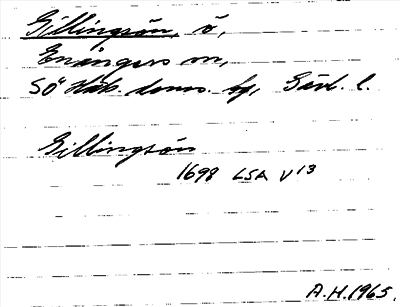 Gillingsön, ö,
Enångers sn,
SÖ Häls. doms. by, Gävl. l.
Gillingsön
1698 LSA V 13
A.H. 1965.